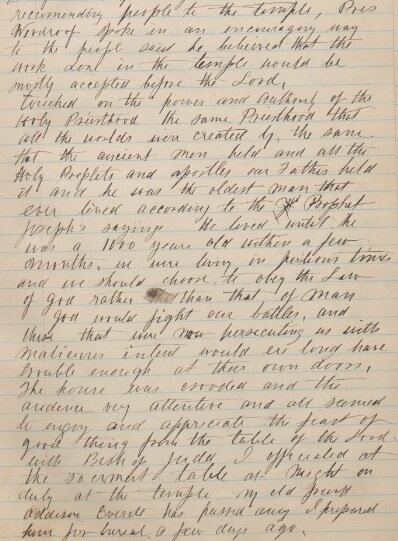 recimending people to the temple, Pres
Woodroof spoke in an encouraging way
to the peopl said he believed that the
work done in the temple would be
mostly accepted before the Lord,
touched on the power and authority of the
Holy Priesthood the same Priesthood that
all the worlds were created by the same
that the ancient men held and all the
Holy Prophets and apostles our Father held
it and he was the oldest man that
ever lived according to the Prophet
Joseph's sayings He lived until he
was a 1000 years old within a few
months, we were living in perious times
and we should choose to obey the Law
of God rather than that of Man
God would fight our battles, and
those that were now persecuting us with
malicious intent would ere long have
trouble enough at their own doors,
The house was crowded and the
audience very attentive and all seemed
to enjoy and appreciate the feast of
good thing from the table of the Lord.
with Bishop Judd I officiated at
the sacrment table at Night on
duty at the temple my old friend
Addison Everete has passed away I prepared
him for burial a few days ago.